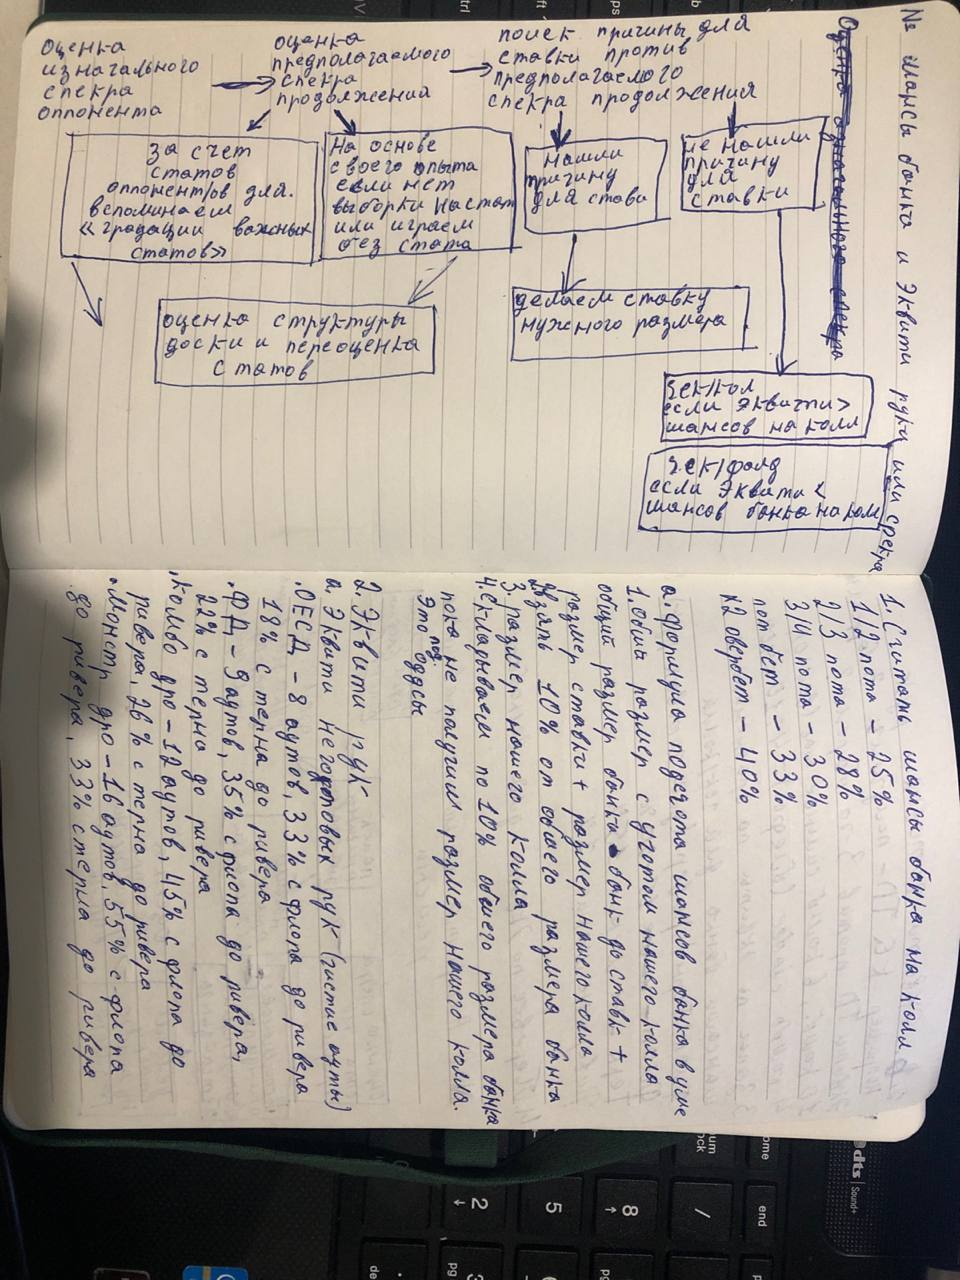 оценка
изначального
спектра
оппонента
оценка
предполагаемого
спектра
продолжений
поиск причины для
ставки против
предполагаемого
спектра продолжения
за счет
статов
оппонентов для.
вспоминаем
«градации важных
статов»
На основе
своего опыта
если нет
выборки на стат
или играем
без стата
нашли
причину
для ставки
не нашли
причину
для
ставки
оценка структуры
доски и переоценка
статов
делаем ставку
нужного размера
чек/кол
если эквити >
шансов на колл
чек/фолд
если эквити <
шансов банка на колл
№ шансы банка и Эквити руки или спектра
1. Считать шансы банка на колл
1/2 пота – 25%
2/3 пота – 28%
3/4 пота – 30%
пот бет – 33%
х2 овербет – 40%
а. формула подсчета шансов банка в уме
1. общий размер с учетом нашего колла
общий размер банка банк до ставк +
размер ставки + размер нашего колла
2. взять 10% от общего размера банка
3. размер нашего колла
4. складываем по 10% общего размера банка
пока не получим размер нашего колла.
Это под оддсы
2. Эквити рук
а. Эквити неготовых рук (чистые ауты)
. ОЕСД – 8 аутов, 33% с флопа до ривера
18% с терна до ривера
. ФД – 9 аутов, 35% с флопа до ривера,
22% с терна до ривера
. Комбо дро – 12 аутов, 45% с флопа до
ривера, 26% с терна до ривера
. Монстр дро – 16 аутов, 55% с флопа
до ривера, 33% с терна до ривера
dts
Sound+
ctrl
end
/
8
5
2
pg